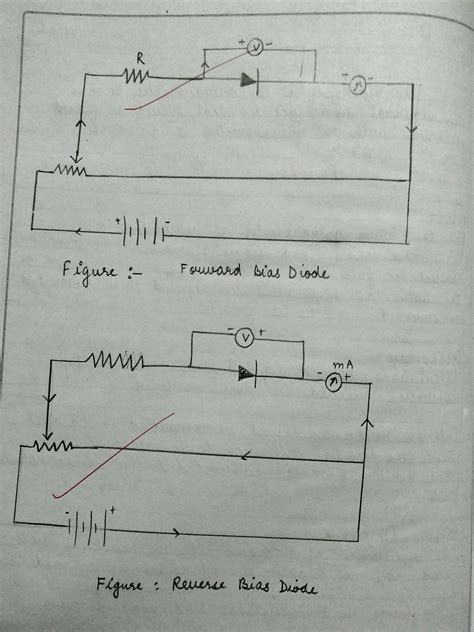 + V -
R
+ -
+ -
Figure :- Forward Bias Diode
- V +
mA
- +
- +
Figure : Reverse Bias Diode